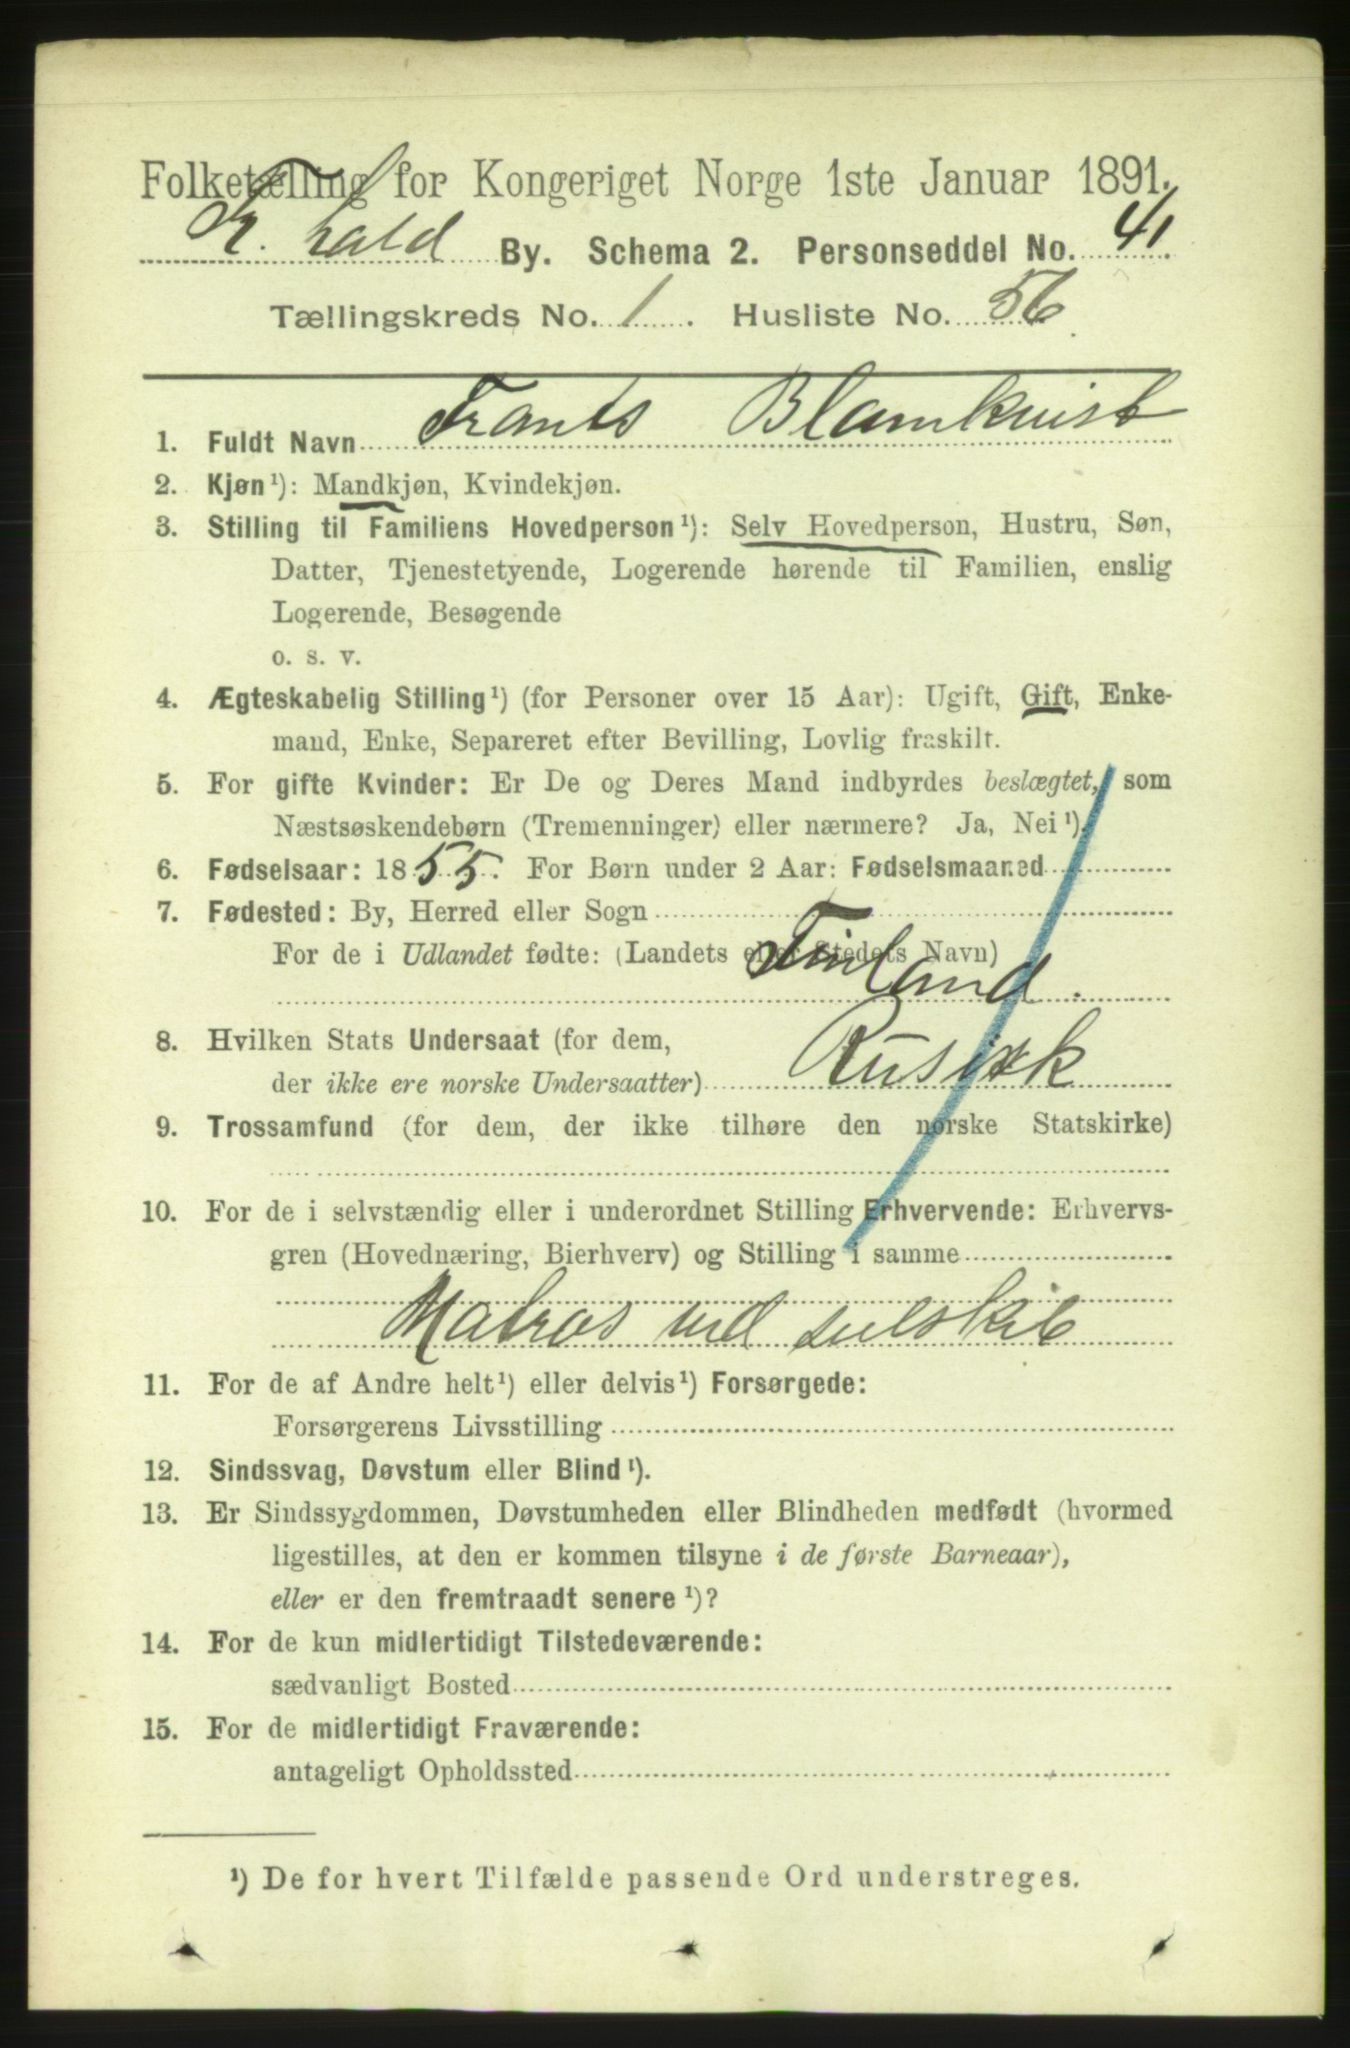 Folketælling for Kongeriget Norge 1ste Januar 1891.
Fr. hald By. Schema 2. Personseddel No. 41.
Tællingskreds No. 1. Husliste No. 56
1. Fuldt Navn Frants Blamkvist
2. Kjøn¹): Mandkjøn, Kvindekjøn.
3. Stilling til Familiens Hovedperson¹): Selv Hovedperson, Hustru, Søn,
Datter, Tjenestetyende, Logerende hørende til Familien, enslig
Logerende, Besøgende
o. s. v.
4. Ægteskabelig Stilling¹) (for Personer over 15 Aar): Ugift, Gift, Enke-
mand, Enke, Separeret efter Bevilling, Lovlig fraskilt.
5. For gifte Kvinder: Er De og Deres Mand indbyrdes beslægtet, som
Næstsøskendebørn (Tremenninger) eller nærmere? Ja, Nei¹).
6. Fødselsaar: 1855. For Børn under 2 Aar: Fødselsmaaned
7. Fødested: By, Herred eller Sogn
For de i Udlandet fødte: (Landets eller Stedets Navn)
Finland.
8. Hvilken Stats Undersaat (for dem,
der ikke ere norske Undersaatter) Rusisk
9. Trossamfund (for dem, der ikke tilhøre den norske Statskirke)
10. For de i selvstændig eller i underordnet Stilling Erhvervende: Erhvervs-
gren (Hovednæring, Bierhverv) og Stilling i samme
Matros ved seilskib
11. For de af Andre helt¹) eller delvis¹) Forsørgede:
Forsørgerens Livsstilling
12. Sindssvag, Døvstum eller Blind¹).
13. Er Sindssygdommen, Døvstumheden eller Blindheden medfødt (hvormed
ligestilles, at den er kommen tilsyne i de første Barneaar),
eller er den fremtraadt senere¹)?
14. For de kun midlertidigt Tilstedeværende:
sædvanligt Bosted
15. For de midlertidigt Fraværende:
antageligt Opholdssted
¹) De for hvert Tilfælde passende Ord understreges.